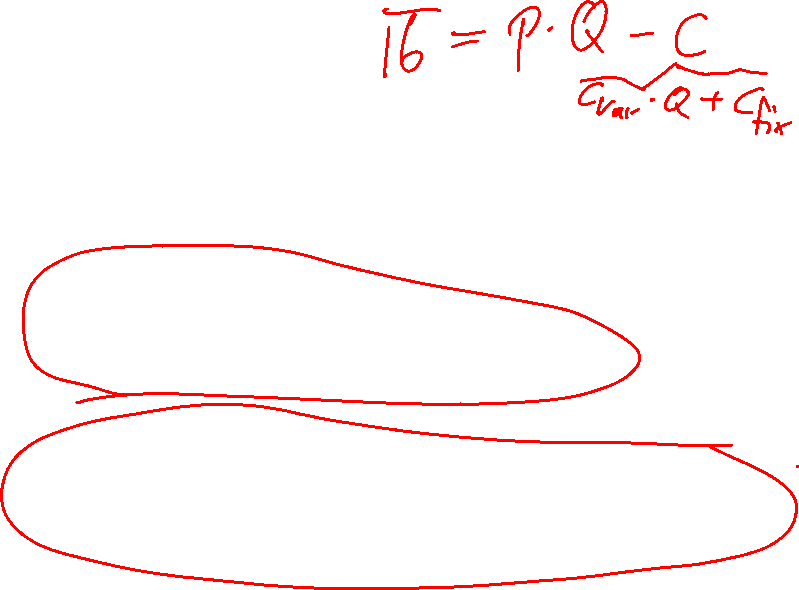 π = P · Q - C
C_var · Q + C_fix